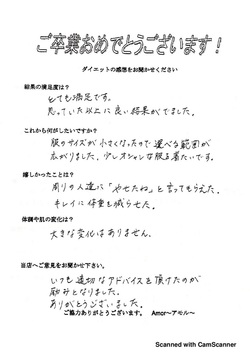 ご卒業おめでとうございます！
ダイエットの感想をお聞かせください
結果の満足度は？
とても満足です。
思っていた以上に良い結果がでました。
これから何がしたいですか？
服のサイズが小さくなったので選べる範囲が
広がりました、少しオシャレな服を着たいです。
嬉しかったことは？
周りの人達に「やせたね」と言ってもらえた、
キレイに体重を減らせた。
体調や肌の変化は？
大きな変化はありません、
当店へご意見をお聞かせ下さい。
いつも適切なアドバイスを頂けたのが
励みとなりました、
ありがとうございました。
ご協力ありがとうございます。 Amor〜アモル〜
Scanned with CamScanner